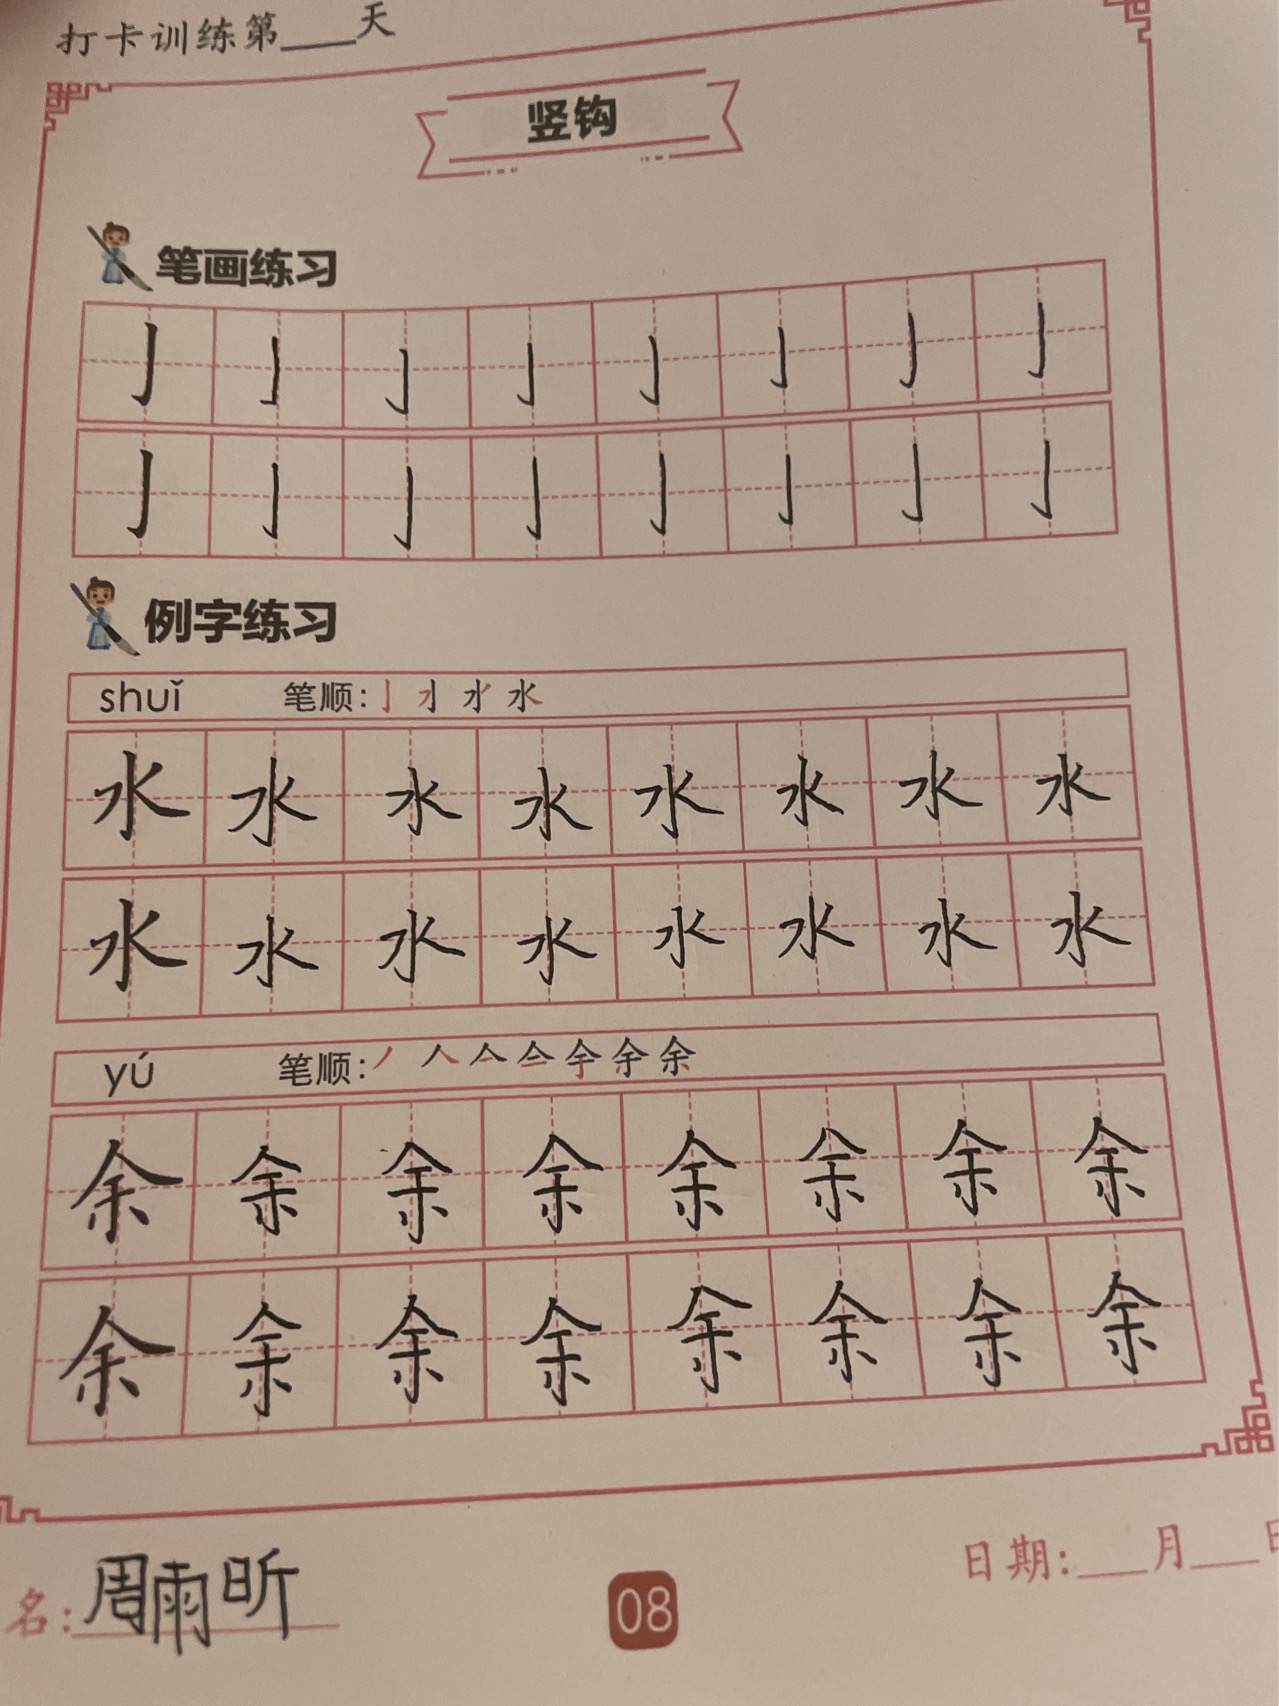 打卡训练第___天
竖钩
笔画练习
亅 亅 亅 亅 亅 亅 亅 亅
亅 亅 亅 亅 亅 亅 亅 亅
例字练习
shuǐ 笔顺：亅 水
水 水 水 水 水 水 水 水
水 水 水 水 水 水 水 水
yú 笔顺：丿 人 亼 余
余 余 余 余 余 余 余 余
余 余 余 余 余 余 余 余
名：周雨昕
08
日期：___月___日